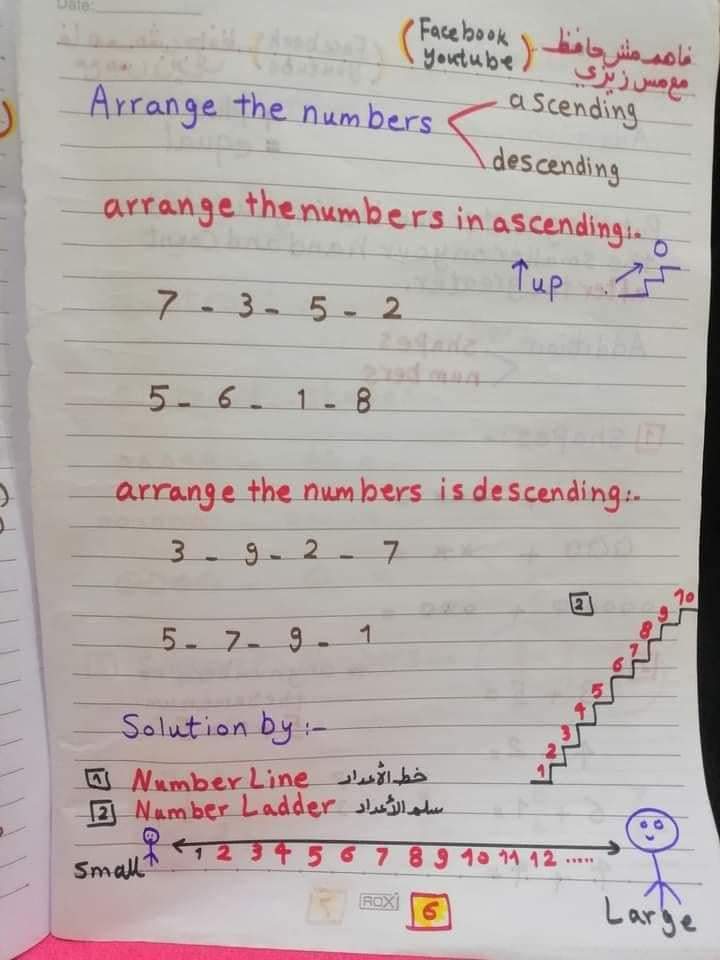 Date:
(Facebook
youtube)
فاهم مش حافظ
مع مس زيزي
Arrange the numbers
ascending
descending
arrange the numbers in ascending:.
↑up
7 - 3 - 5 - 2
5 - 6 - 1 - 8
arrange the numbers is descending:.
3 - 9 - 2 - 7
5 - 7 - 9 - 1
2
1 2 3 4 5 6 7 8 9 10
Solution by:-
1 Number Line خط الأعداد
2 Number Ladder سلم الأعداد
small 1 2 3 4 5 6 7 8 9 10 11 12 .....
Large
ROX 6